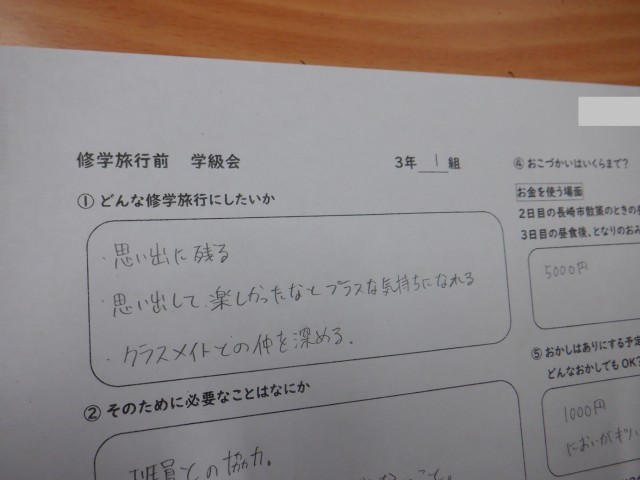 修学旅行前 学級会
3年 1 組
① どんな修学旅行にしたいか
・思い出に残る
・思い出して、楽しかったなとプラスな気持ちになれる
・クラスメイトとの仲を深める。
② そのために必要なことはなにか
班員との協力。
④ おこづかいはいくらまで?
お金を使う場面
2日目の長崎市散策のときの
3日目の昼食後、となりのおみ
5000円
⑤ おかしはありにする予定
どんなおかしでもOK?
1000円
においがキツい